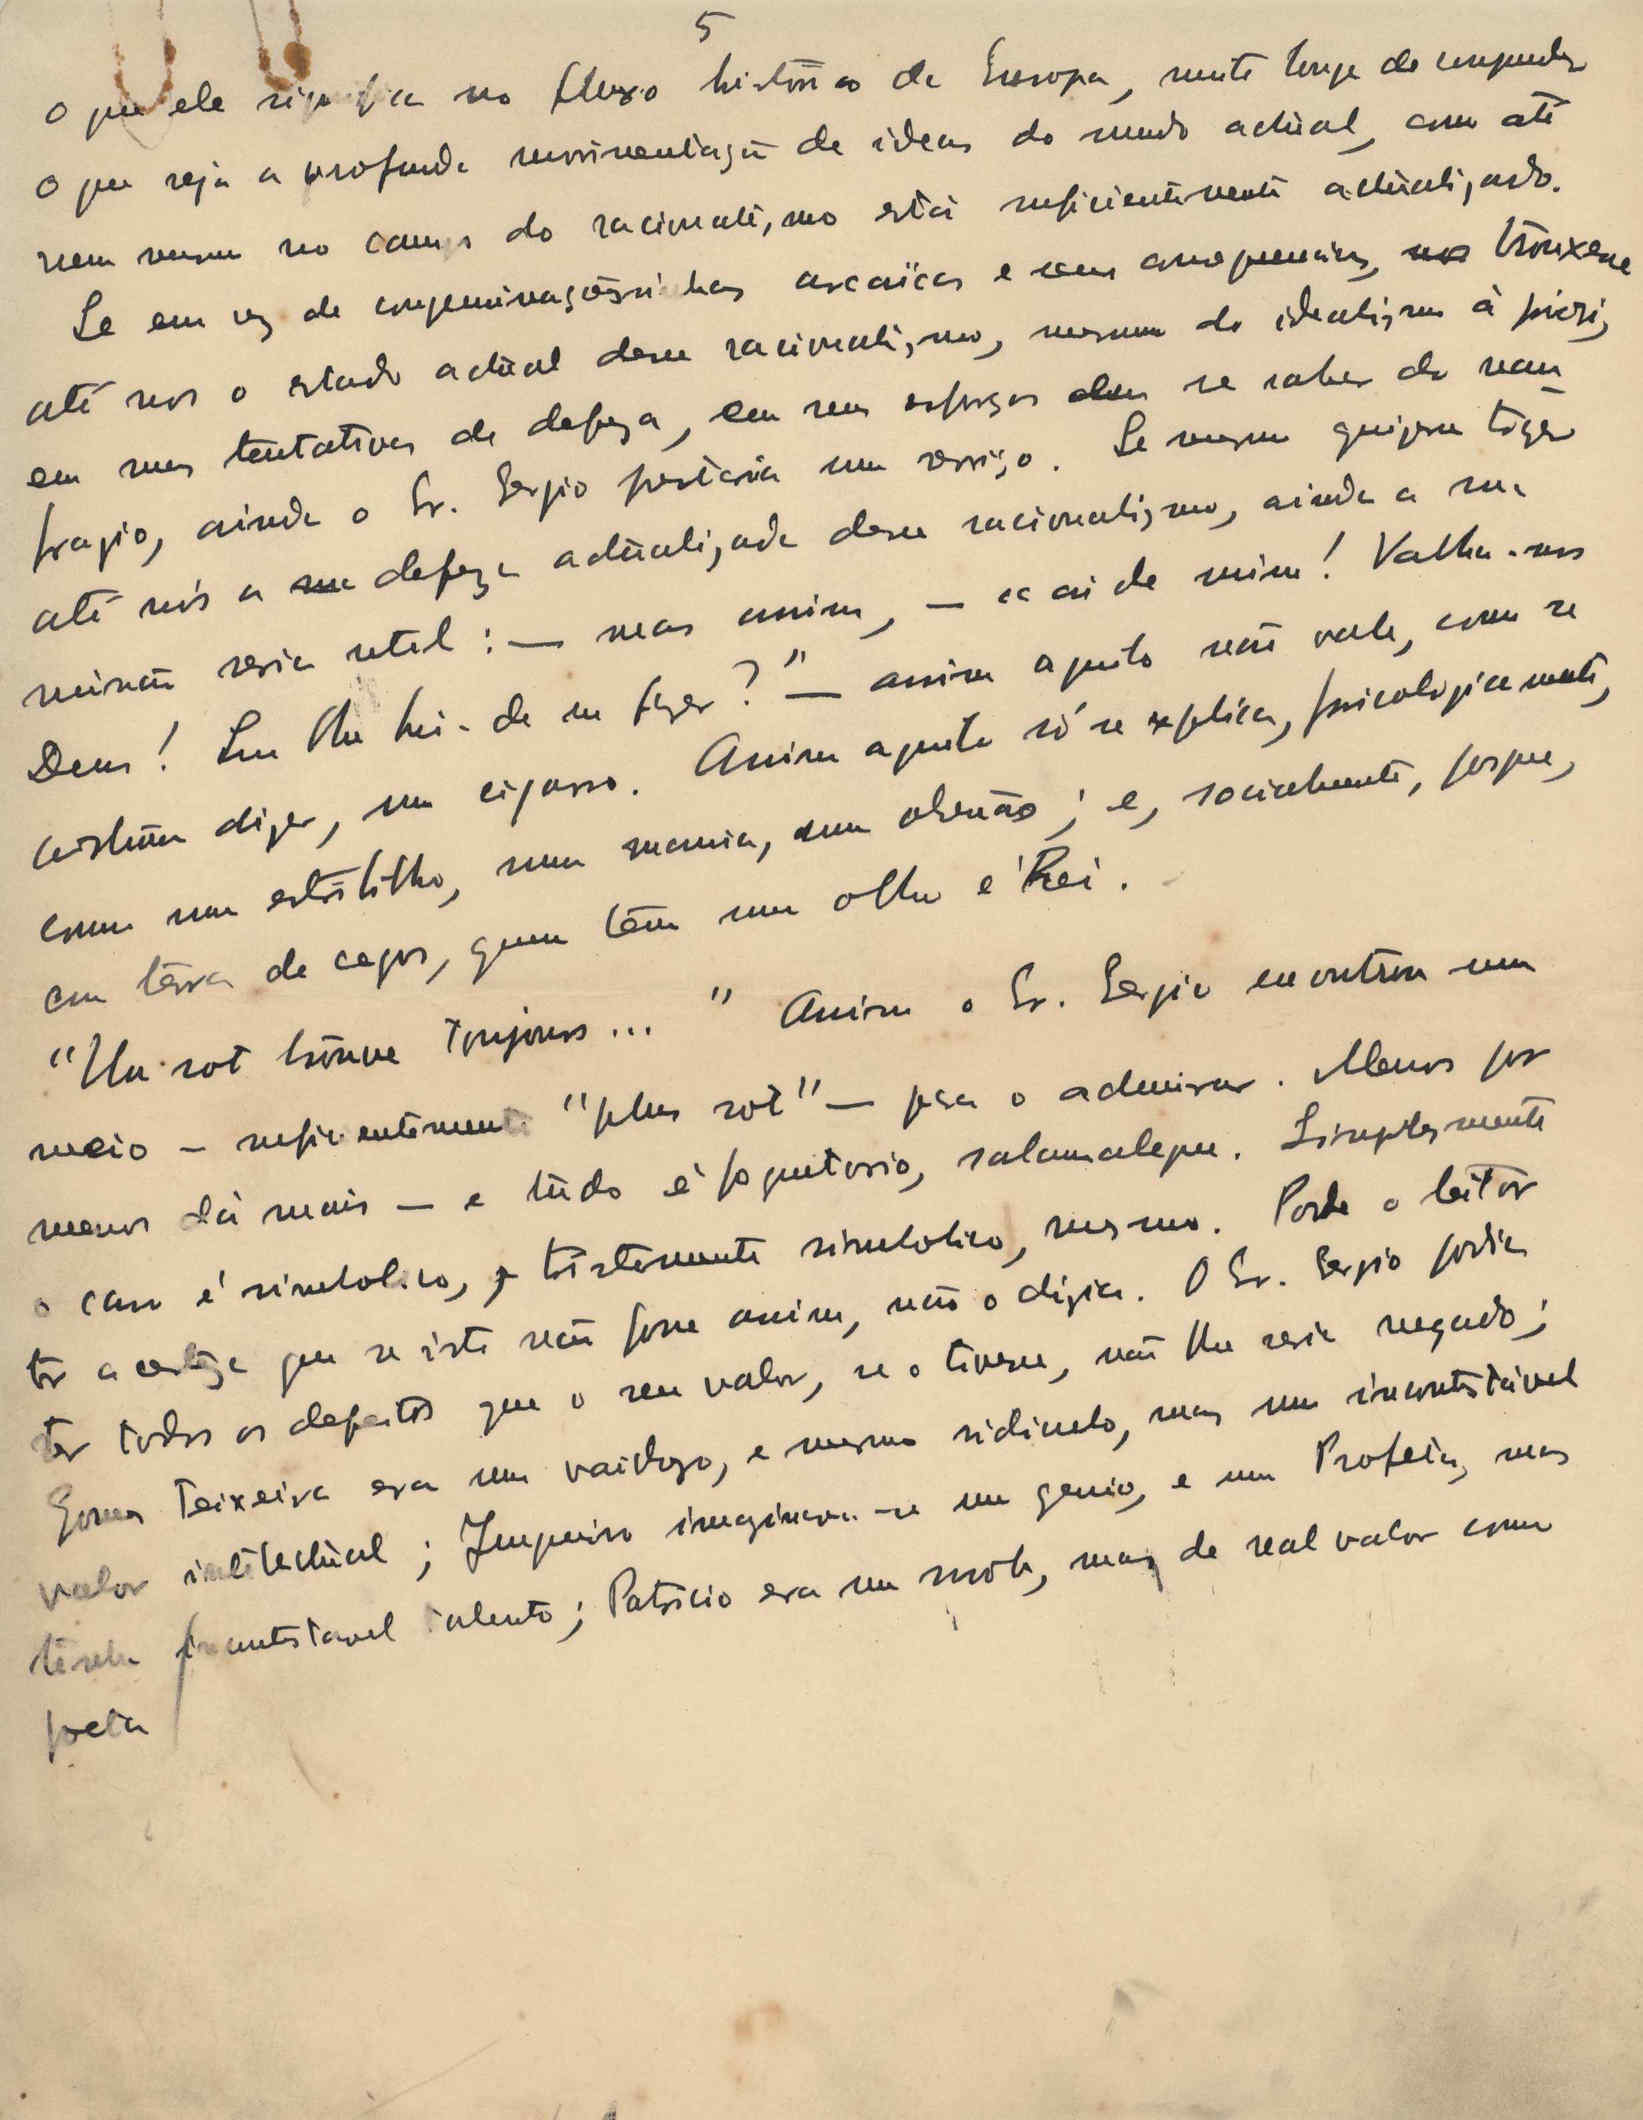 5
O que ele significa no fluxo histórico da Europa, muito longe de compreender
o que seja a profunda movimentação de ideas do mundo actual, como até
nem mesmo no campo do racionalismo está suficientemente actualizado.
Se em vez de congeminaçõesinhas arcaïcas e sem consequencias, nos trouxesse
até nos o estado actual desse racionalismo, mesmo do idealismo à priori,
em suas tentativas de defeza, em seus esforços de se salvar do nau-
fragio, ainda o Sr. Sergio prestaria um serviço. Se mesmo quizesse trazer
até nós a sua defeza actualizada desse racionalismo, ainda a sua
missão seria util: — mas assim, — "ai de mim! Valha-nos
Deus! Que lhe hei-de eu fazer?" — assim aquilo não vale, como se
costuma dizer, um cigarro. Assim aquilo só se explica, psicologicamente,
como um estribilho, uma mania, uma obsessão; e, socialmente, porque,
em terra de cegos, quem tem um olho é Rei.
"Un sot trouve toujours..." Assim o Sr. Sergio encontrou um
meio — suficientemente "plus sot" — para o admirar. Menos por
menos dá mais — e tudo é foguetorio, salamaleque. Simplesmente
o caso é simbolico, tristemente simbolico, mesmo. Pode o leitor
ter a certeza que se isto não fosse assim, não o dizia. O Sr. Sergio podia
ter todos os defeitos que o seu valor, se o tivesse, não lhe seria negado;
Gomes Teixeira era um vaidoso, e mesmo ridiculo, mas um incontestável
valor intelectual; Junqueiro imaginava-se um genio, e um Profeta, mas
tinha incontestavel talento; Patricio era um snob, mas de real valor como
poeta